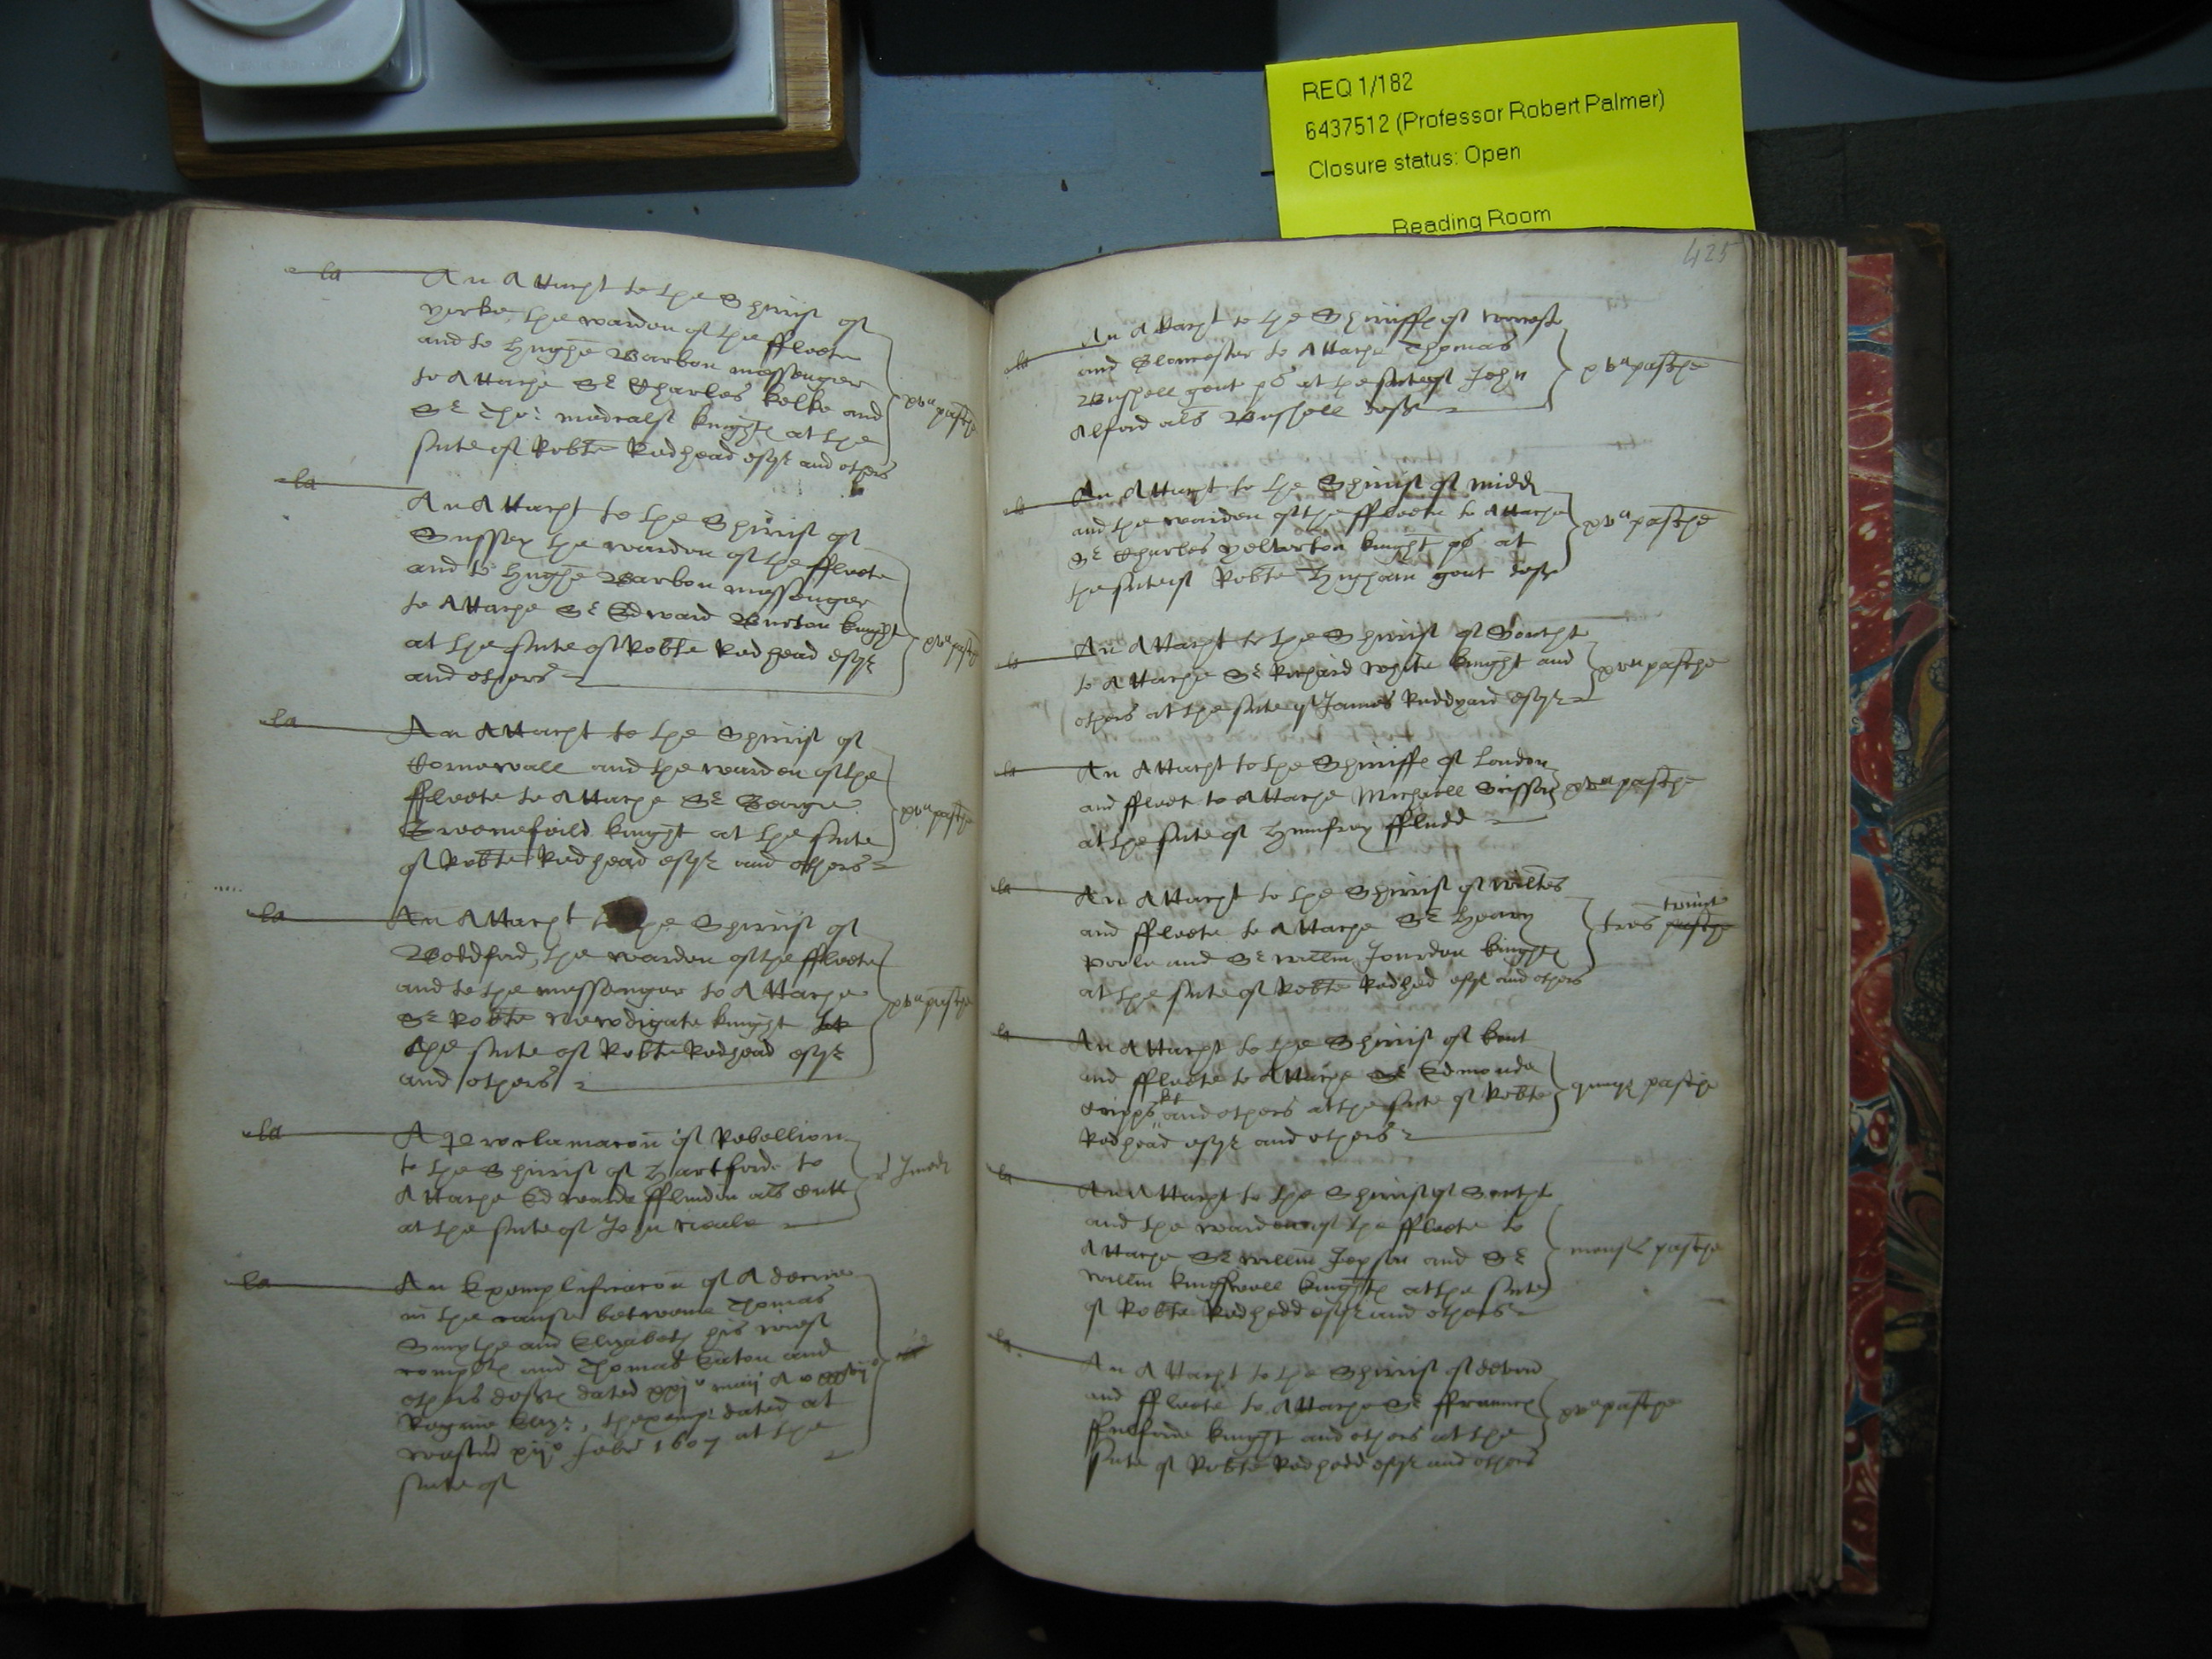 REQ 1/182
6437512 (Professor Robert Palmer)
Closure status: Open
Reading Room
la
An Attacht to the Shirif of
yorke, the warden of the ffleete
and to hughe Barbon messenger
to Attache Sr Charles kelke and
Sr Tho: knight at the
sute of Robte Redhead esqr and others
xvna pasche
la
An Attacht to the Shirif of
Sussex the warden of the ffleete
and to hughe Barbon messenger
to Attache Sr Edward Burton knight
at the sute of Robte Redhead esqr
and others
xvna pasche
la
An Attacht to the Shirif of
Cornewall and the warden of the
ffleete to Attache Sr George
Greenefeild knight at the sute
of Robte Redhead esqr and others
xvna pasche
la
An Attacht to the Shirif of
Beddford, the warden of the ffleete
and to the messenger to Attache
Sr Robte Newdigate knight
the sute of Robte Redhead esqr
and others
xvna pasche
la
A proclamacon of Rebellion
to the Shirif of Hartford to
Attache Edwarde als
at the sute of John
Imed
la
An Exemplificacon of A decree
in the cause betweene Thomas
Smythe and Elizabeth his wief
complts and Thomas Eaton and
others deffts dated maij Ao
Regine Eliz: , dated at
westm xijo febr 1607 at the
sute of
425
la
An Attacht to the Shiriffe of
and Glocester to Attache Thomas
Bushell gent at the sute of John
Alford als Bushell
xvna pasche
la
An Attacht to the Shirif of midd
and the warden of the ffleete to Attache
Sr Charles yelverton knight at
the sute of Robte Hugham gent
xvna pasche
la
An Attacht to the Shirif of Southt
to Attache Sr Richard white knight and
others at the sute of James Ruddyard esqr
xvna pasche
la
An Attacht to the Shiriffe of London
and ffleet to Attache Michaell
at the sute of Humfrey ffludd
xvna pasche
la
An Attacht to the Shirif of wiltes
and ffleete to Attache Sr Henry
Poole and Sr willm Jourdon knights
at the sute of Robte Redhed esqr and others
tres trinit pasche
la
An Attacht to the Shirif of kent
and ffleete to Attache Sr Edmonde
Cripps kt and others at the sute of Robte
Redhead esqr and others
pasche
la
An Attacht to the Shirif of Southt
and the warden of the ffleete to
Attache Sr willm Jepson and Sr
willm kingswell knights at the sute
of Robte Redhedd esqr and others
mense pasche
la
An Attacht to the Shirif of devon
and ffleete to Attache Sr ffrauncs
ffulforde knight and others at the
sute of Robte Redhedd esqr and others
xvna pasche